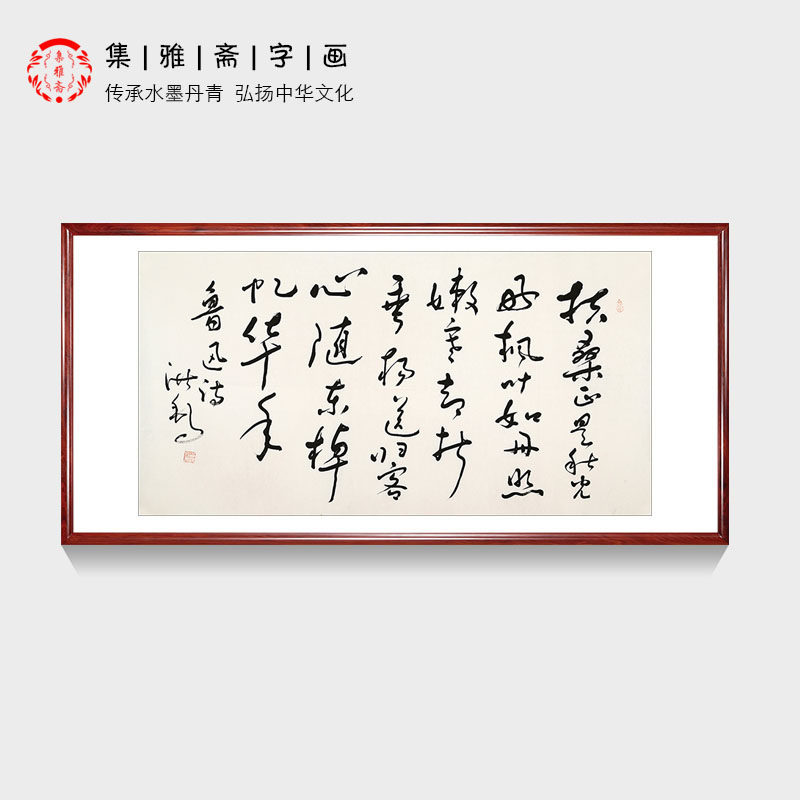 集|雅|斋|字|画
集雅斋
传承水墨丹青 弘扬中华文化
扶桑正是秋光
好枫叶如丹照
嫩寒却折
垂杨送归客
心随东棹
忆华年
鲁迅诗